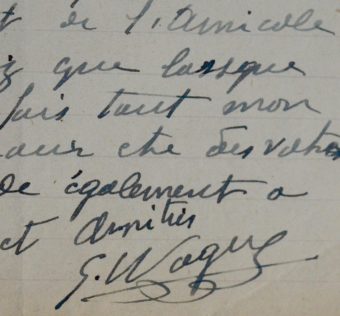 t de l'Amicale
que lorsque
fais tout mon
avoir été des votres
de également a
et Amitiés
G. Wague